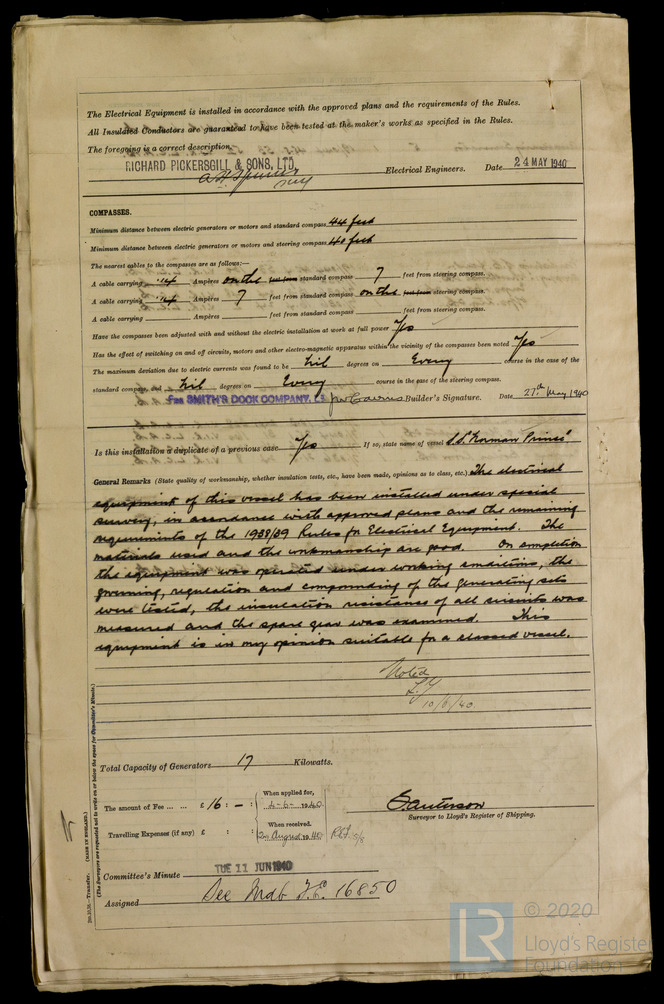 The Electrical Equipment is installed in accordance with the approved plans and the requirements of the Rules.
All Insulated Conductors are guaranteed to have been tested at the maker's works as specified in the Rules.
The foregoing is a correct description,
RICHARD PICKERSGILL & SONS, LTD. Electrical Engineers. Date 24 MAY 1940
COMPASSES.
Minimum distance between electric generators or motors and standard compass 44 feet
Minimum distance between electric generators or motors and steering compass 40 feet
The nearest cables to the compasses are as follows:—
A cable carrying .14 Ampères on the feet from standard compass 7 feet from steering compass.
A cable carrying .14 Ampères 7 feet from standard compass on the feet from steering compass.
A cable carrying Ampères feet from standard compass feet from steering compass.
Have the compasses been adjusted with and without the electric installation at work at full power Yes
Has the effect of switching on and off circuits, motors and other electro-magnetic apparatus within the vicinity of the compasses been noted Yes
The maximum deviation due to electric currents was found to be Nil degrees on Every course in the case of the
standard compass, and Nil degrees on Every course in the case of the steering compass.
For SMITH'S DOCK COMPANY, Ld Builder's Signature. Date 27th May 1940
Is this installation a duplicate of a previous case Yes If so, state name of vessel S.S. "Norman Prince"
General Remarks (State quality of workmanship, whether insulation tests, etc., have been made, opinions as to class, etc.) The electrical
equipment of this vessel has been installed under special
survey, in accordance with approved plans and the remaining
requirements of the 1938/39 Rules for Electrical Equipment. The
materials used and the workmanship are good. On completion
the equipment was operated under working conditions, the
governing, regulation and compounding of the generating sets
were tested, the insulation resistance of all circuits was
measured and the spare gear was examined. This
equipment is in my opinion suitable for a classed vessel.
Noted
10/6/40
Total Capacity of Generators 17 Kilowatts.
The amount of Fee ... ... £ 16 : - : When applied for, 4-6-1940
Surveyor to Lloyd's Register of Shipping.
Travelling Expenses (if any) £ : : When received, 2nd August 1940
Committee's Minute TUE 11 JUN 1940
Assigned See Mdb F.E. 16850
(MADE IN ENGLAND.)
(The Surveyors are requested not to write on or below the space for Committee's Minute.)
LR © 2020
Lloyd's Register
Foundation